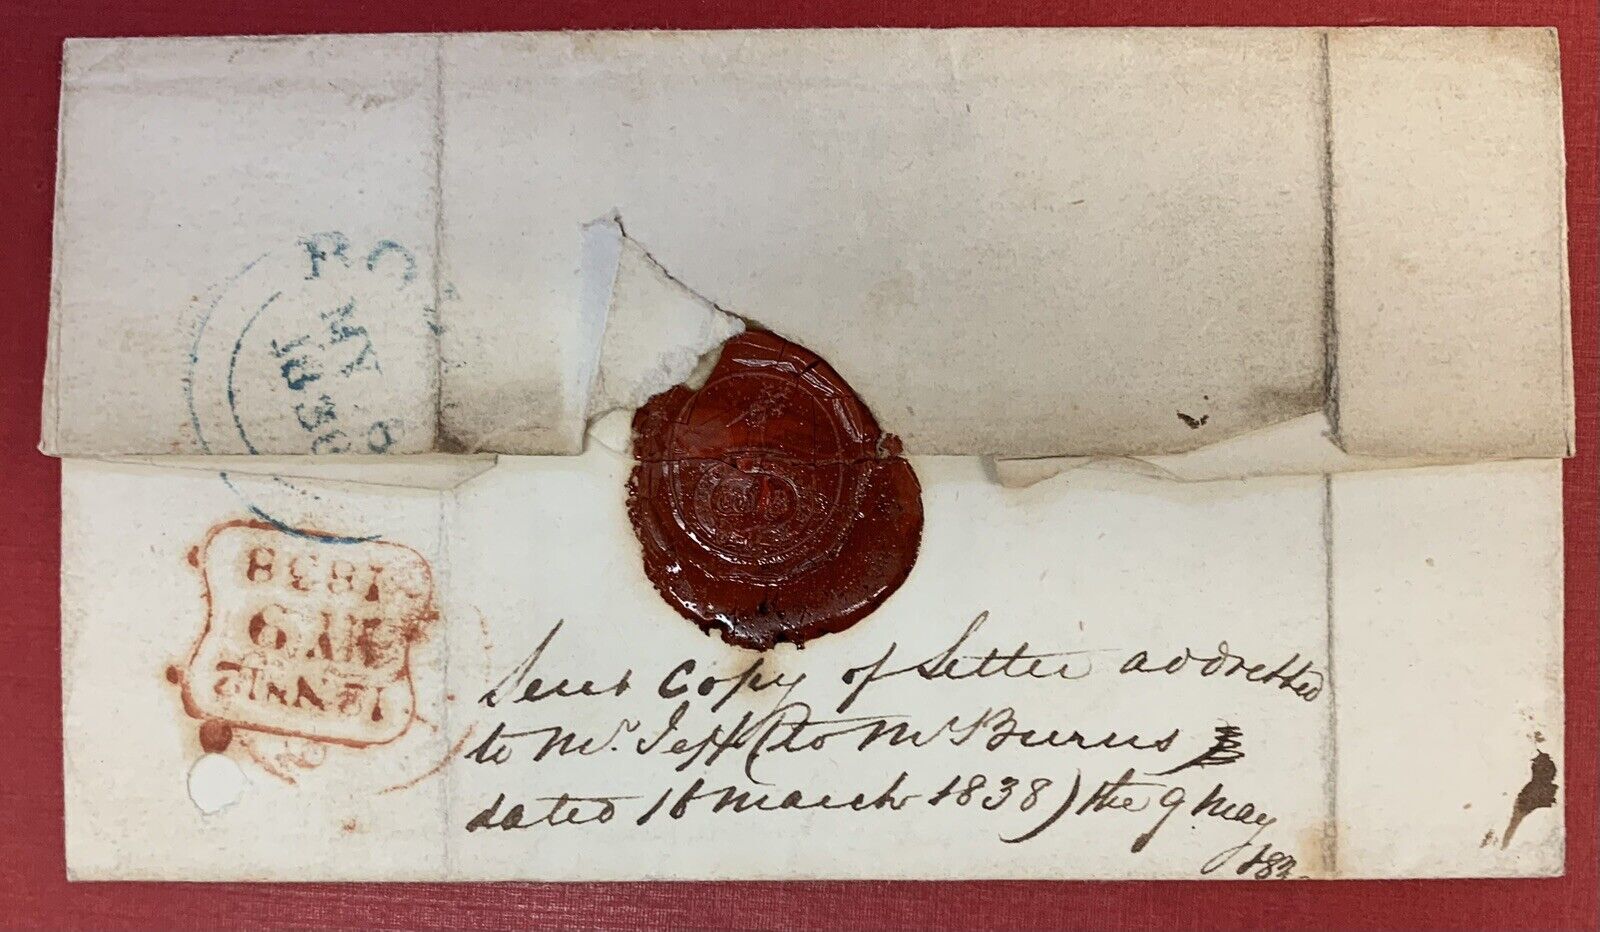 MY
183
12 NN 12
MY 9
1838
Sent Copy of Letter addressed
to Mr. Jeff (to Mr Burns
dated 16 March 1838) the 9 May
183